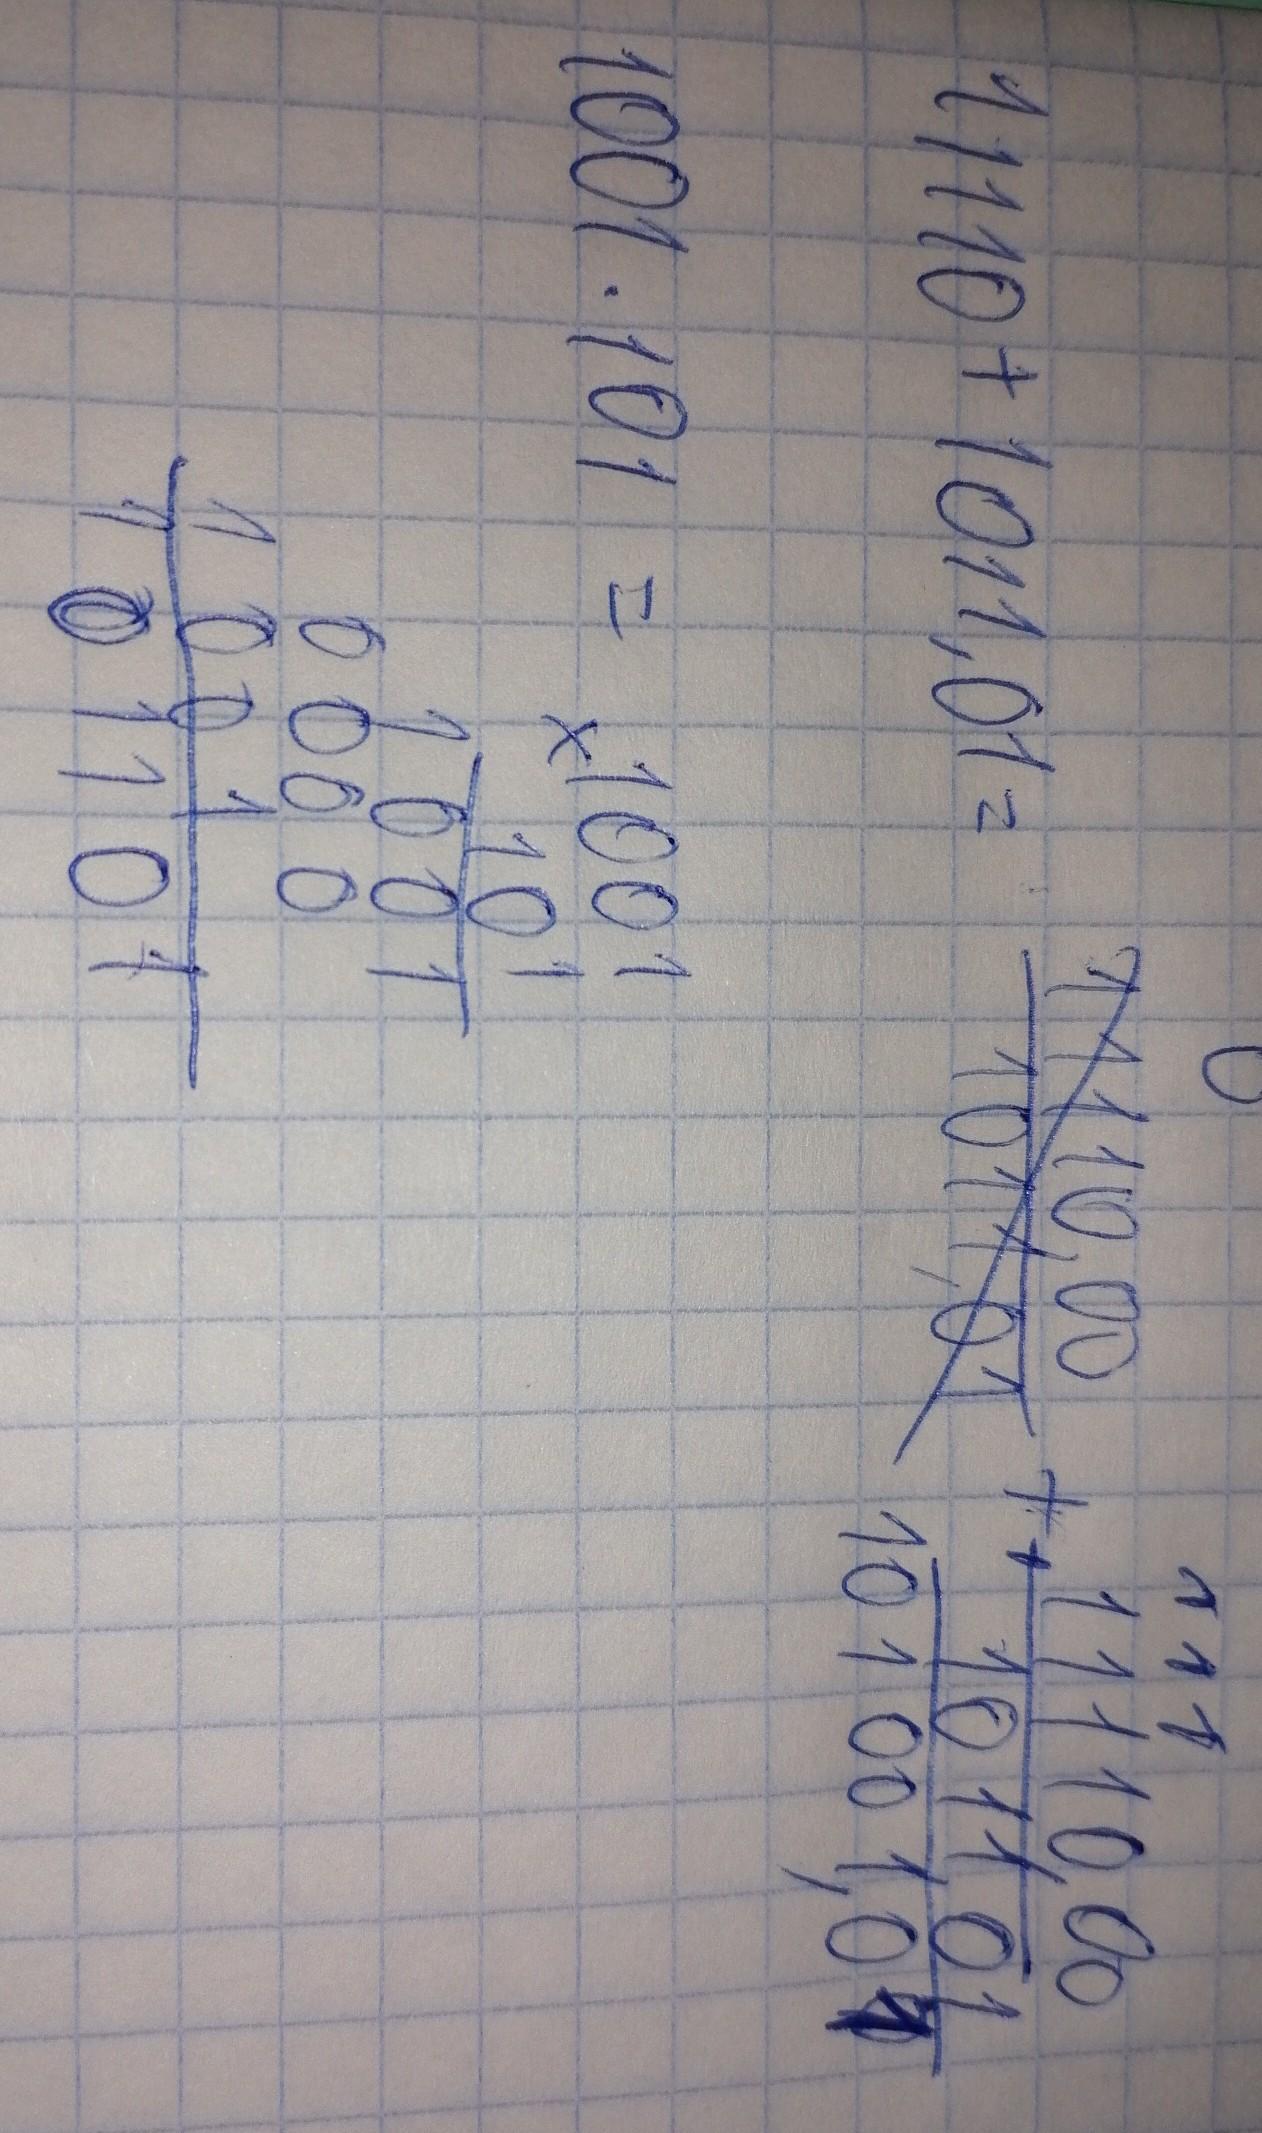 11110+1011,01=
11110,00
1011,01
+ 1 1 1
11110,00
1011,01
101001,01
1001·101=
×1001
101
1001
0000
1001
101101